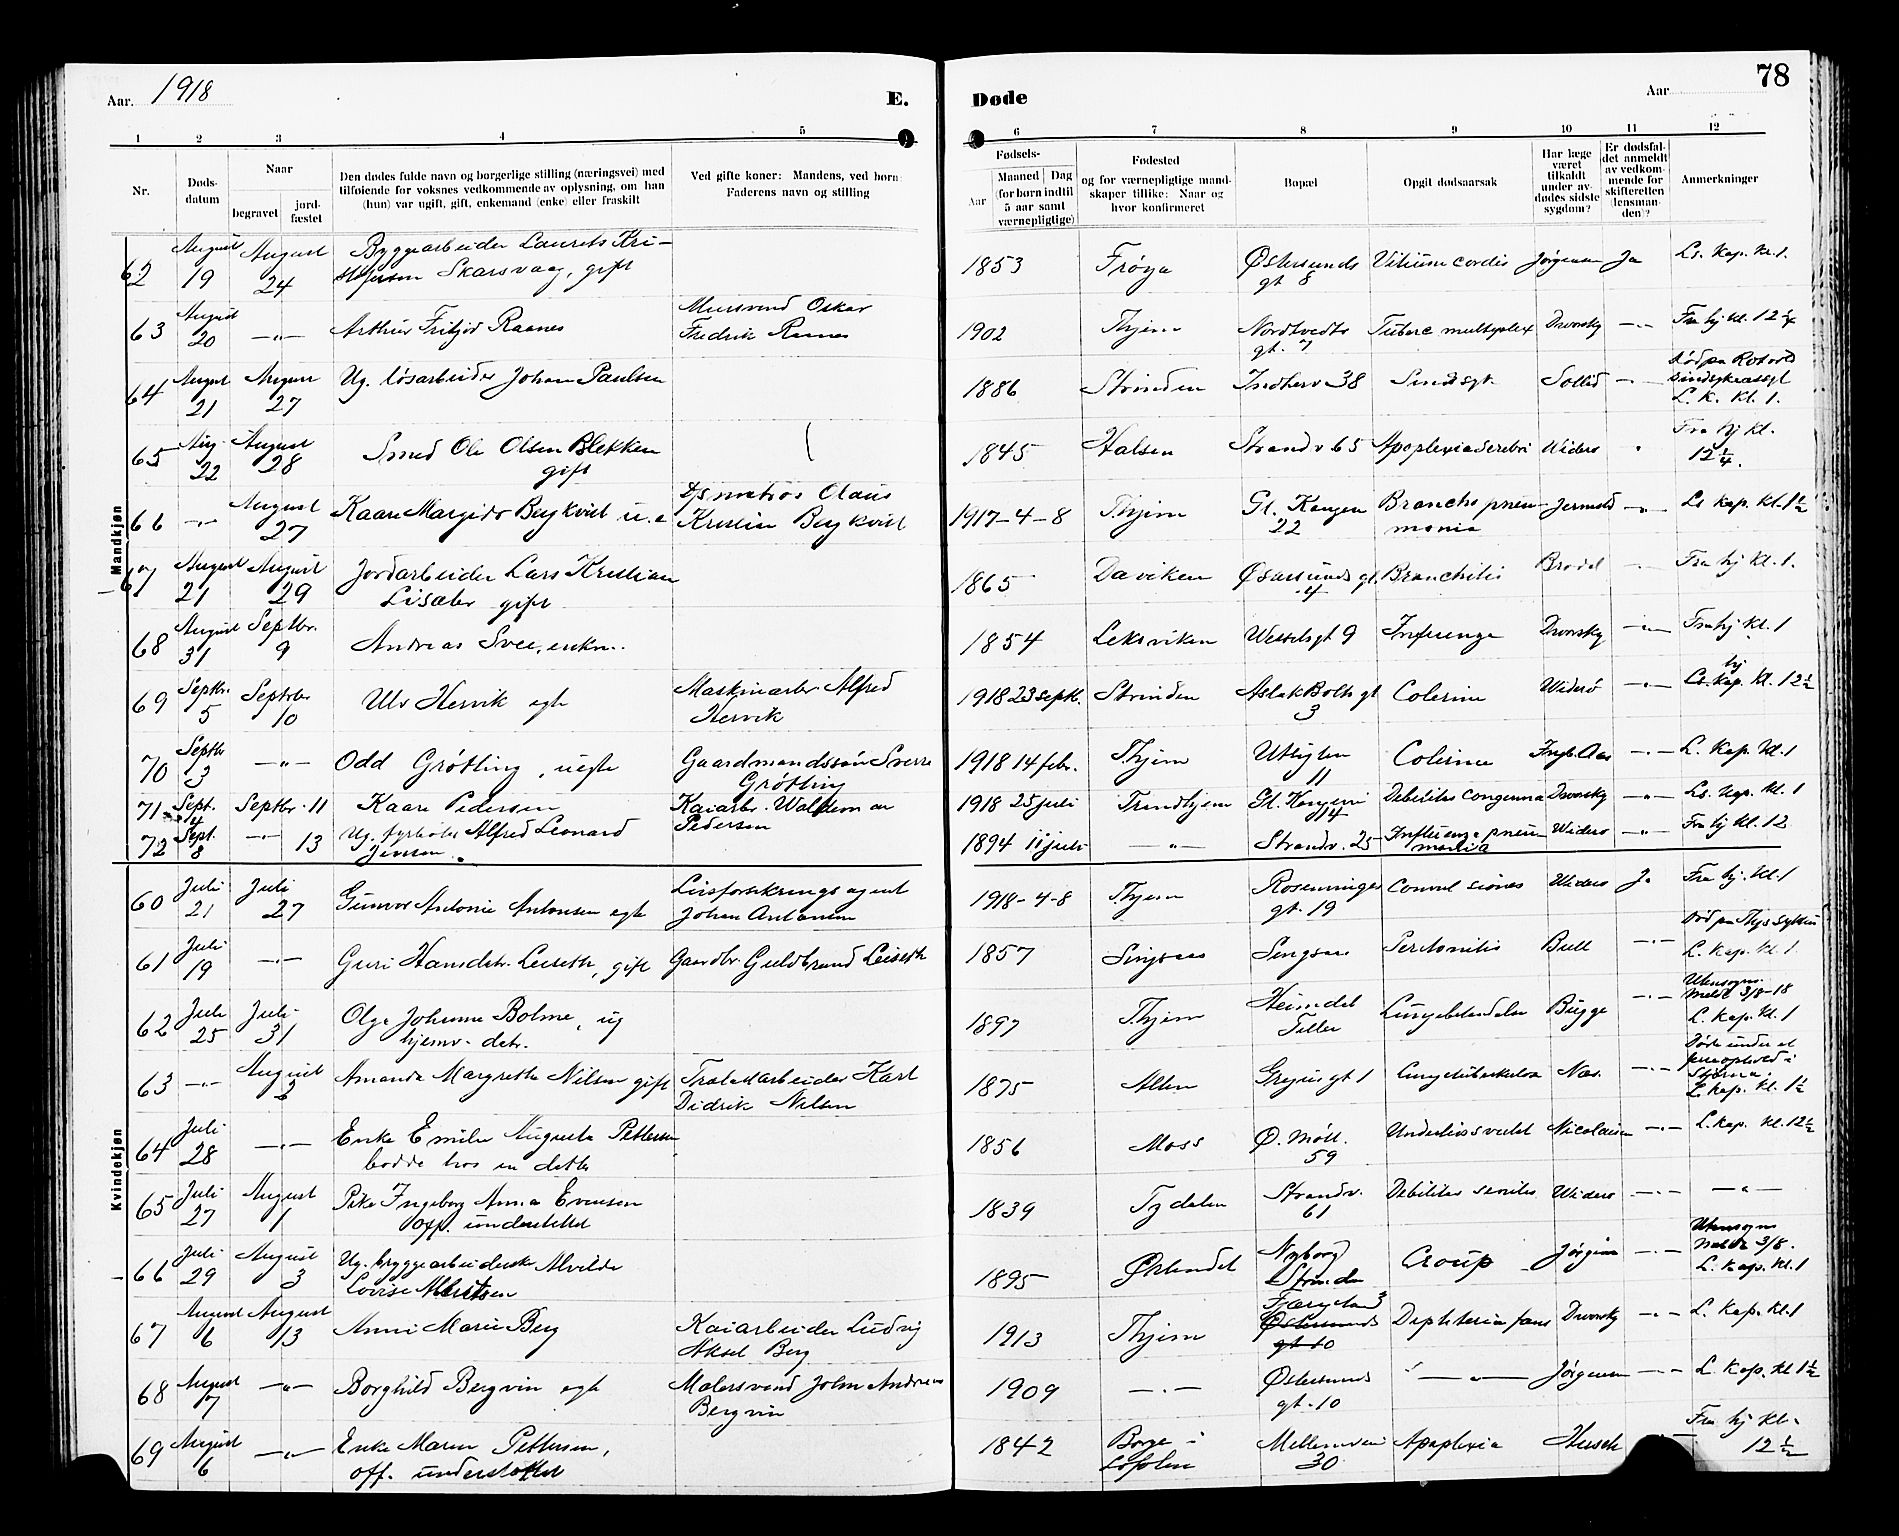 Aar. 1918
E.
Døde
Aar
78
1 2 3 4 5 6 7 8 9 10 11 12
Nr.
Døds-
datum
Naar
begravet
jord-
fæstet
Den dødes fulde navn og borgerlige stilling (næringsvei) med
tilføiende for voksnes vedkommende av oplysning, om han
(hun) var ugift, gift, enkemand (enke) eller fraskilt
Ved gifte koner: Mandens, ved børn:
Faderens navn og stilling
Fødsels-
Aar
Maaned Dag
(for børn indtil
5 aar samt
værnepligtige)
Fødested
og for værnepligtige mand-
skaper tillike: Naar og
hvor konfirmeret
Bopæl
Opgit dødsaarsak
Har læge
været
tilkaldt
under av-
dødes sidste
sygdom?
Er dødsfal-
det anmeldt
av vedkom-
mende for
skifteretten
(lensman-
den)?
Anmerkninger
Mandkjøn
62 August 19 August 24 Byggearbeider Laurets Kri-
stofersen Skarsvaag, gift 1853 Frøya Østersunds gt 8 Vitium cordis Jørgensen Ja Ls. Kap. Kl. 1.
63 August 20 —"— Arthur Fritjof Raanes Mursvend Oskar
Fredrik Raanes 1902 Thjem Nordtvedts gt. 7 Tuberc multiplex Dvorsky —"— Fra hj kl. 12 1/4
64 August 21 August 27 Ug. løsarbeider Johan Paulsen 1886 Strinden Indherv 38 Sindsygt. Sollid —"— død paa Rotvold
sindsykeasyl
L. K. Kl. 1.
65 Aug. 22 August 28 Smed Ole Olsen Blekken
gift 1845 Halsen Strandv 65 Apoplexia cerebri Widerø " Fra hj kl.
12 1/4.
66 —"— August 27 Kaare Margido Bergkvist u.e
Kristian Bergkvist 1917-4-8 Thjem Gl. Kongev 22 Broncho pneu-
monia —"— Ls Kap. Kl. 1 1/2
67 August 21 August 29 Jordarbeider Lars Kristian
gift 1865 Daviken Østersunds gt. 4 Bronchitis —"— Fra hj kl. 1.
68 August 31 Septbr. 9 Andreas Svee, enkm. 1854 Leksviken Wesselsgt 9 Influenza Dvorsky —"— Fra hj. kl. 1
69 Septbr. 5 Septbr 10 Ulv Hervik egte Maskinarbr Alfred
Hervik 1918 23 septb. Strinden Aslak Bolts gt 3 Colerine Widerø —"— hj
Ls. Kap. Kl. 12 1/2
70 Septbr 3 —"— Odd Grøtting, uegte Gaardmandssøn Sverre
Grøtting 1918 14 febr. Thjem 11 Colerine Ingb. Aas —"— L. Kap. Kl. 1
71 Sept. 4 Septbr. 11 Kaare Pedersen Kaiarbr. Waldemar
Pedersen 1918 25 juli Trondhjem Gl. Kongevei 14 Debilitas congenita Dvorsky —"— Ls. Kap. Kl. 1
72 Sept. 8 —"— 13 Ug. fyrbøter Alfred Leonard
Jensen. 1894 11 juli —"— Strandv. 25 Influenza pneu
monia Widerø —"— Fra hj kl. 12
Kvindekjøn
60 Juli 21 Juli 27 Gunvor Antonie Antonsen egte Livsforsikringsagent
Johan Antonsen 1918-4-8 Thjem Rosenningens gt. 19 Convulsiones Widerø Ja Fra hj. Kl. 1
61 Juli 19 —"— Guri Hansdtr. Leiseth, gift Gaardbr. Guldbrand Leiseth 1857 Singsaas Singsaas Peritonitis Bull —"— død paa Thjs sykehus
L. Kap. Kl. 1
62 Juli 25 Juli 31 Olga Johanne Bolme, ug
hjemv. datr. 1897 Thjem Heimdal
Tiller Lungebetændelse Bugge —"— Utensogns
Meldt 3/8-18
L. Kap. Kl. 1
63 —"— August 2 Amanda Margrethe Nilsen gift Trælastarbeider Karl
Didrik Nilsen 1875 Alten gt 1 Lungetuberkulose Næs. —"— Døde under et
L. Kap. Kl. 1 1/2
64 Juli 28 —"— Enke Emilie Augusta Pettersen
bodde hos en datter 1856 Moss Ø. Møll. 59 Underlivssvulst Nicolaisen —"— L. Kap. Kl. 12 1/2
65 Juli 27 August 1 Pike Ingeborg Anna Evensen
off. understøttet 1839 Tydalen Strandv. 61 Debilitas senilis Widerø —"— —"—
66 Juli 29 August 3 Ug. bryggearbeiderske Alvilde
Lovise Albertsen 1895 Ørlandet Nyborg
Strinda Croup Jørgensen —"— Utensogns
Meldt 3/8.
L. Kap. Kl. 1
67 August 6 August 13 Anne Marie Berg Kaiarbeider Ludvig
Aksel Berg 1913 Thjem Østersunds
gt 10 Diphteria Dvorsky —"— L. Kap. Kl. 1
68 August 7 —"— Borghild Bergvin egte Malersvend John Andreas
Bergvin 1909 —"— Østersunds gt. 10 —"— Jørgensen —"— L. Kap. Kl 1 1/2
69 August 6 —"— Enke Maren Pettersen,
off. understøttet 1842 Borge i
Lofoten Mellemvei 30 Apoplexia Fra hj kl.
12 1/2